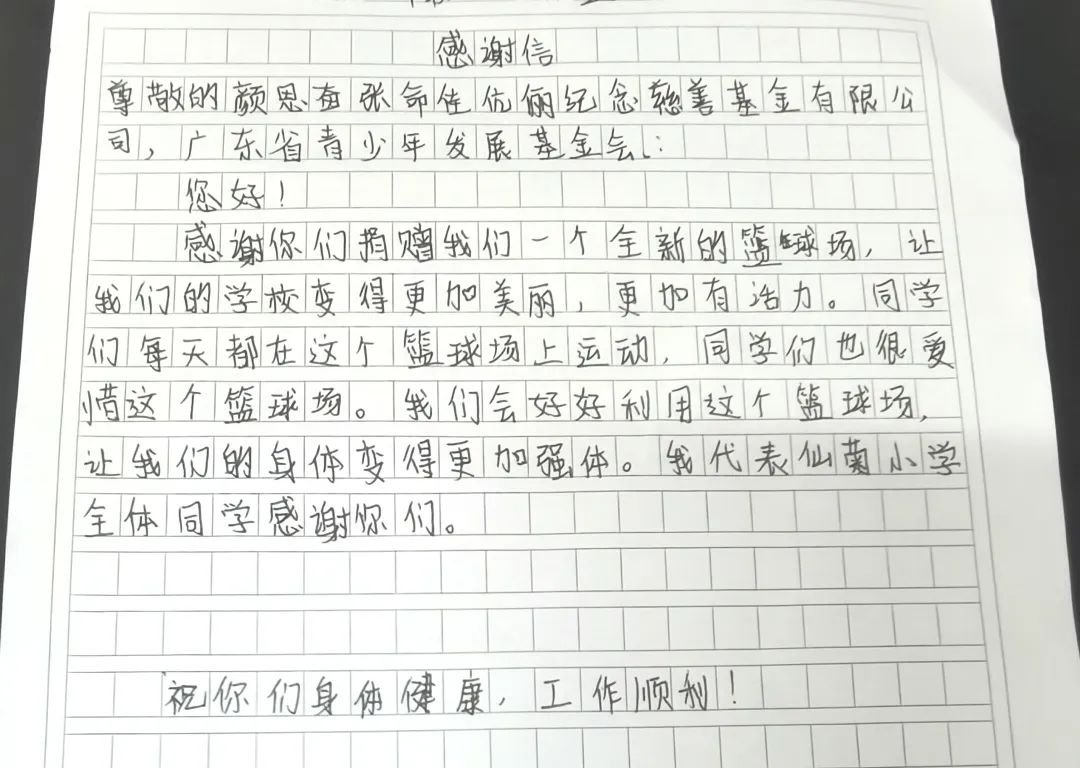 感谢信
尊敬的颜思奋张命佐伉俪纪念慈善基金有限公
司，广东省青少年发展基金会：
您好！
感谢你们捐赠我们一个全新的篮球场，让
我们的学校变得更加美丽，更加有活力。同学
们每天都在这个篮球场上运动，同学们也很爱
惜这个篮球场。我们会好好利用这个篮球场，
让我们的身体变得更加强体。我代表仙菊小学
全体同学感谢你们。
祝你们身体健康，工作顺利！